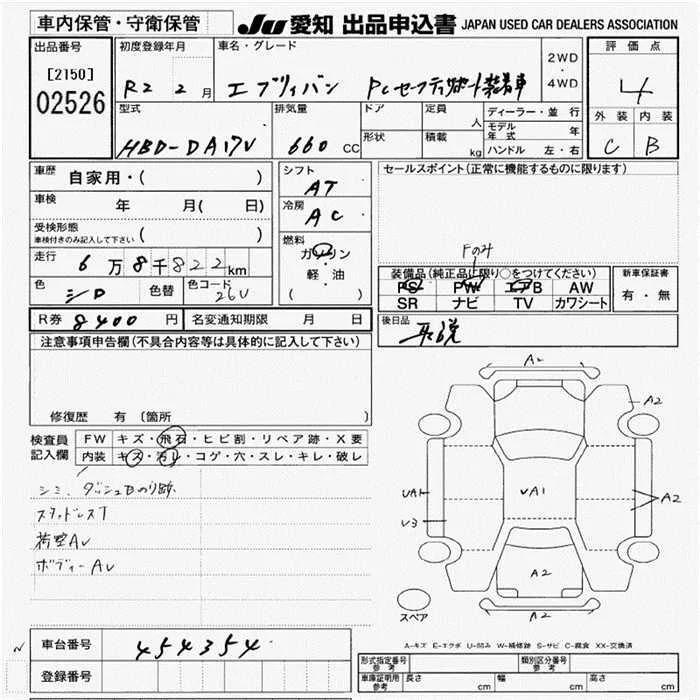 車内保管・守衛保管
JU 愛知 出品申込書 JAPAN USED CAR DEALERS ASSOCIATION
出品番号
[2150]
02526
初度登録年月
R2 2 月
車名・グレード
エブリイバン PCセーフティサポート装着車
2WD
・
4WD
評価点
4
外装 内装
C B
型式
HBD-DA17V
排気量
660 CC
ドア
形状
定員
人
積載
kg
ディーラー・並行
モデル年式 年
ハンドル 左・右
車歴
自家用・( )
車検
年 月( 日)
受検形態
車検付きのみ記入して下さい
( )
走行
6万8千822km
色
シロ
色替
色コード
26U
シフト
AT
冷房
AC
燃料
ガソリン
・
軽・油
( )
セールスポイント(正常に機能するものに限ります)
Fのみ
装備品(純正品に限り○をつけてください)
PS PW エアB AW
SR ナビ TV カワシート
新車保証書
有・無
R券 8400 円
名変通知期限 月 日
後日品
取説
注意事項申告欄(不具合内容等は具体的に記入して下さい)
修復歴 有〔箇所 〕
検査員
記入欄
FW キズ・飛石・ヒビ割・リペア跡・X要
内装 キズ・汚れ・コゲ・穴・スレ・キレ・破レ
シミ、ダッシュBのり跡
スタッドレスT
荷室AU
ボディーAU
A2
A2
UA1
UA1
U3
A2
A2
A2
スペア
A-キズ E-エクボ U-凹み W-補修跡 S-サビ C-腐食 XX-交換済
車台番号
454354
登録番号
形式指定番号
参考
類別区分番号
参考
車庫証明用
参考
長さ cm 幅 cm 高さ cm